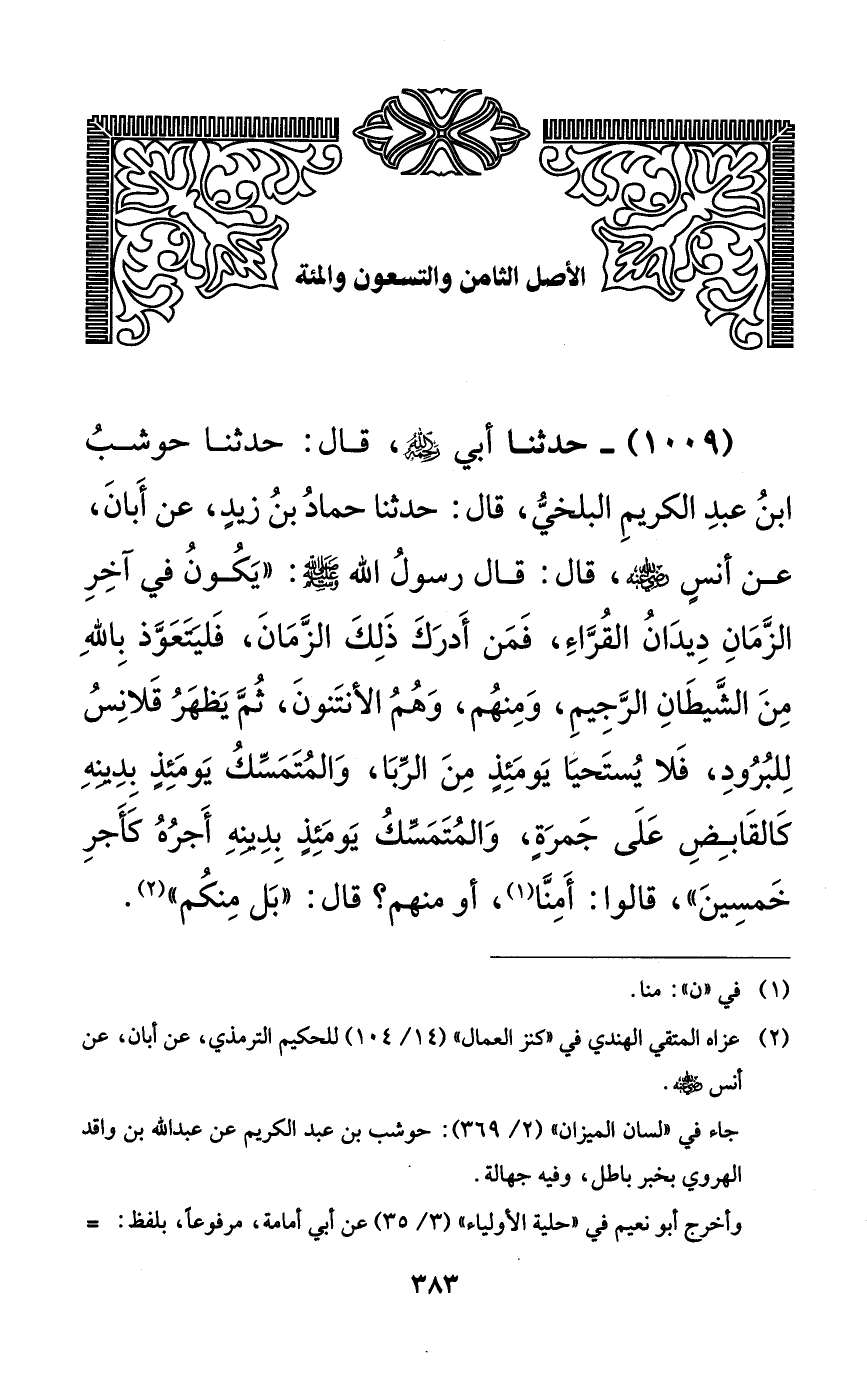 الأصل الثامن والتسعون والمئة
(١٠٠٩) ـ حدثنـا أبي رحمه الله، قـال: حدثنـا حوشـبُ
ابنُ عبدِ الكريمِ البلخيُّ، قال: حدثنا حمادُ بنُ زيدٍ، عن أَبانَ،
عـن أنسٍ رضي الله عنه، قال: قـال رسولُ الله ﷺ: «يَكُـونُ في آخِرِ
الزَّمَانِ دِيدَانُ القُرَّاءِ، فَمَن أَدرَكَ ذَلِكَ الزَّمَانَ، فَليَتَعَوَّذ بِاللهِ
مِنَ الشَّيطَانِ الرَّجِيمِ، وَمِنهُم، وَهُمُ الأَنتَنونَ، ثُمَّ يَظهَرُ قَلانِسُ
لِلبُرُودِ، فَلا يُستَحيَا يَومَئِذٍ مِنَ الرِّبَا، وَالمُتَمَسِّكُ يَومَئِذٍ بِدِينِهِ
كَالقَابِـضِ عَلَى جَمرَةٍ، وَالمُتَمَسِّكُ يَومَئِذٍ بِدِينِهِ أَجرُهُ كَأَجرِ
خَمسِينَ»، قالوا: أَمِنَّا(١)، أو منهم؟ قال: «بَل مِنكُم»(٢).
(١) في «ن»: منا.
(٢) عزاه المتقي الهندي في «كنز العمال» (١٤/ ١٠٤) للحكيم الترمذي، عن أبان، عن
أنس رضي الله عنه.
جاء في «لسان الميزان» (٢/ ٣٦٩): حوشب بن عبد الكريم عن عبدالله بن واقد
الهروي بخبر باطل، وفيه جهالة.
وأخرج أبو نعيم في «حلية الأولياء» (٣/ ٣٥) عن أبي أمامة، مرفوعاً، بلفظ: =
٣٨٣